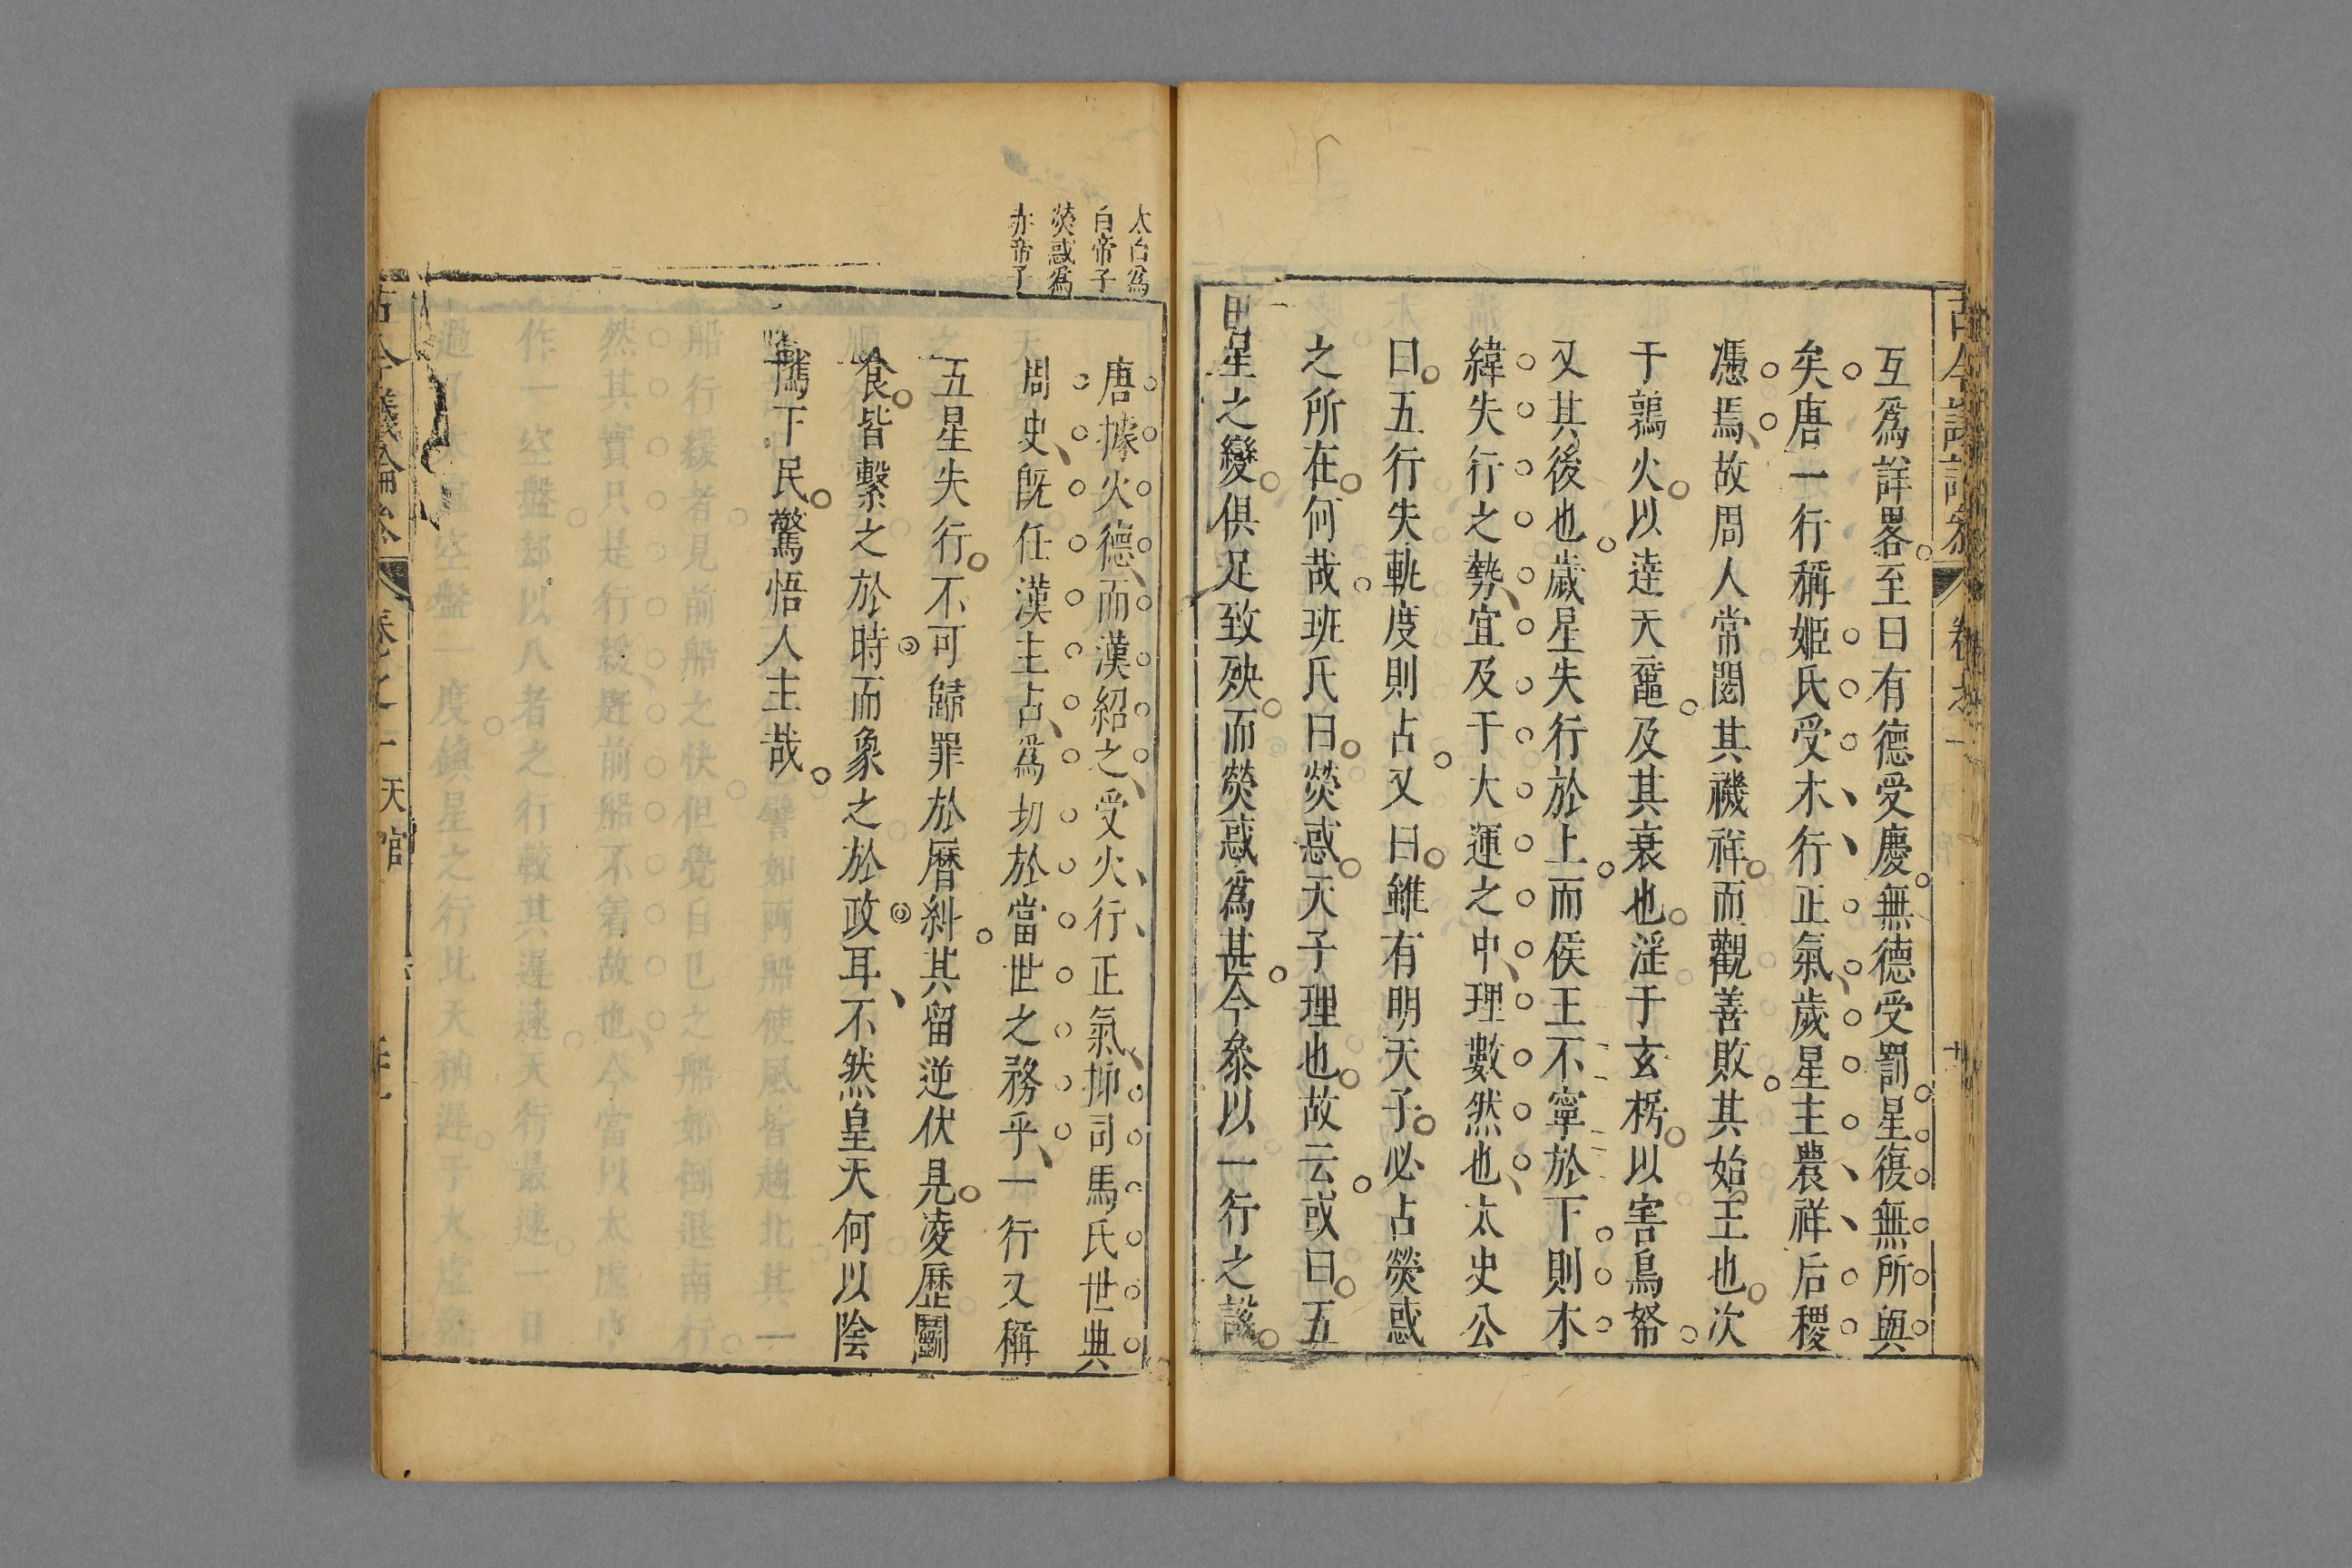 古今議論參 卷之一
互爲詳畧至曰有德受慶無德受罰星復無所與
矣唐一行稱姬氏受木行正氣歲星主農祥后稷
憑焉故周人常閱其禨祥而觀善敗其始王也次
于鶉火以達天黿及其衰也淫于玄枵以害鳥帑
又其後也歲星失行於上而侯王不寧於下則木
緯失行之勢宜及于大運之中理數然也太史公
曰五行失軌度則占又曰雖有明天子必占熒惑
之所在何哉班氏曰熒惑天子理也故云或曰五
星之變俱足致殃而熒惑爲甚今叅以一行之說
太白爲
白帝子
熒惑爲
赤帝子
唐據火德而漢紹之受火行正氣抑司馬氏世典
周史旣任漢主占爲切於當世之務乎一行又稱
五星失行不可歸罪於曆糾其留逆伏見凌歷鬬
食皆繫之於時而象之於政耳不然皇天何以陰
隲下民驚悟人主哉
古今議論參 卷之一 天官